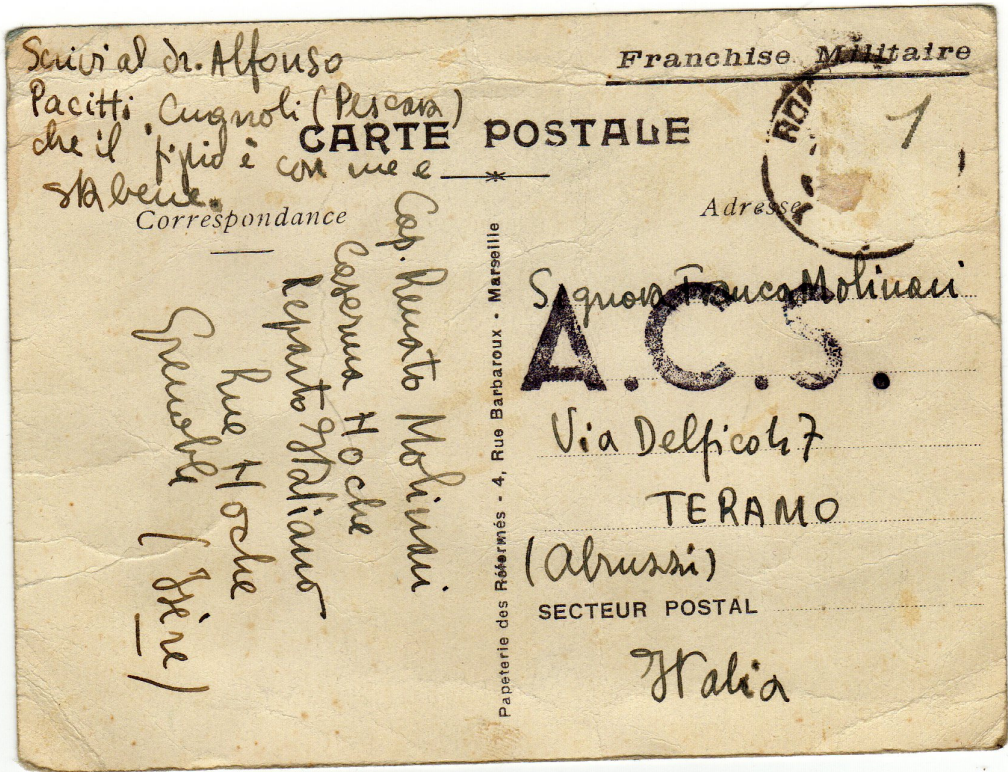 Scrivi al dr. Alfonso
Pacitti, Cugnoli (Pescara)
che il figlio è con me e
sta bene.
Franchise Militaire
CARTE POSTALE
Correspondance
Adresse
Cap. Renato Molinari
Caserma Hoche
Reparto Italiano
Rue Hoche
Grenoble (Isère)
Papeterie des Réformés - 4, Rue Barbaroux - Marseille
1
Signora Franca Molinari
A.C.S.
Via Delfico 47
TERAMO
(Abruzzi)
SECTEUR POSTAL
Italia